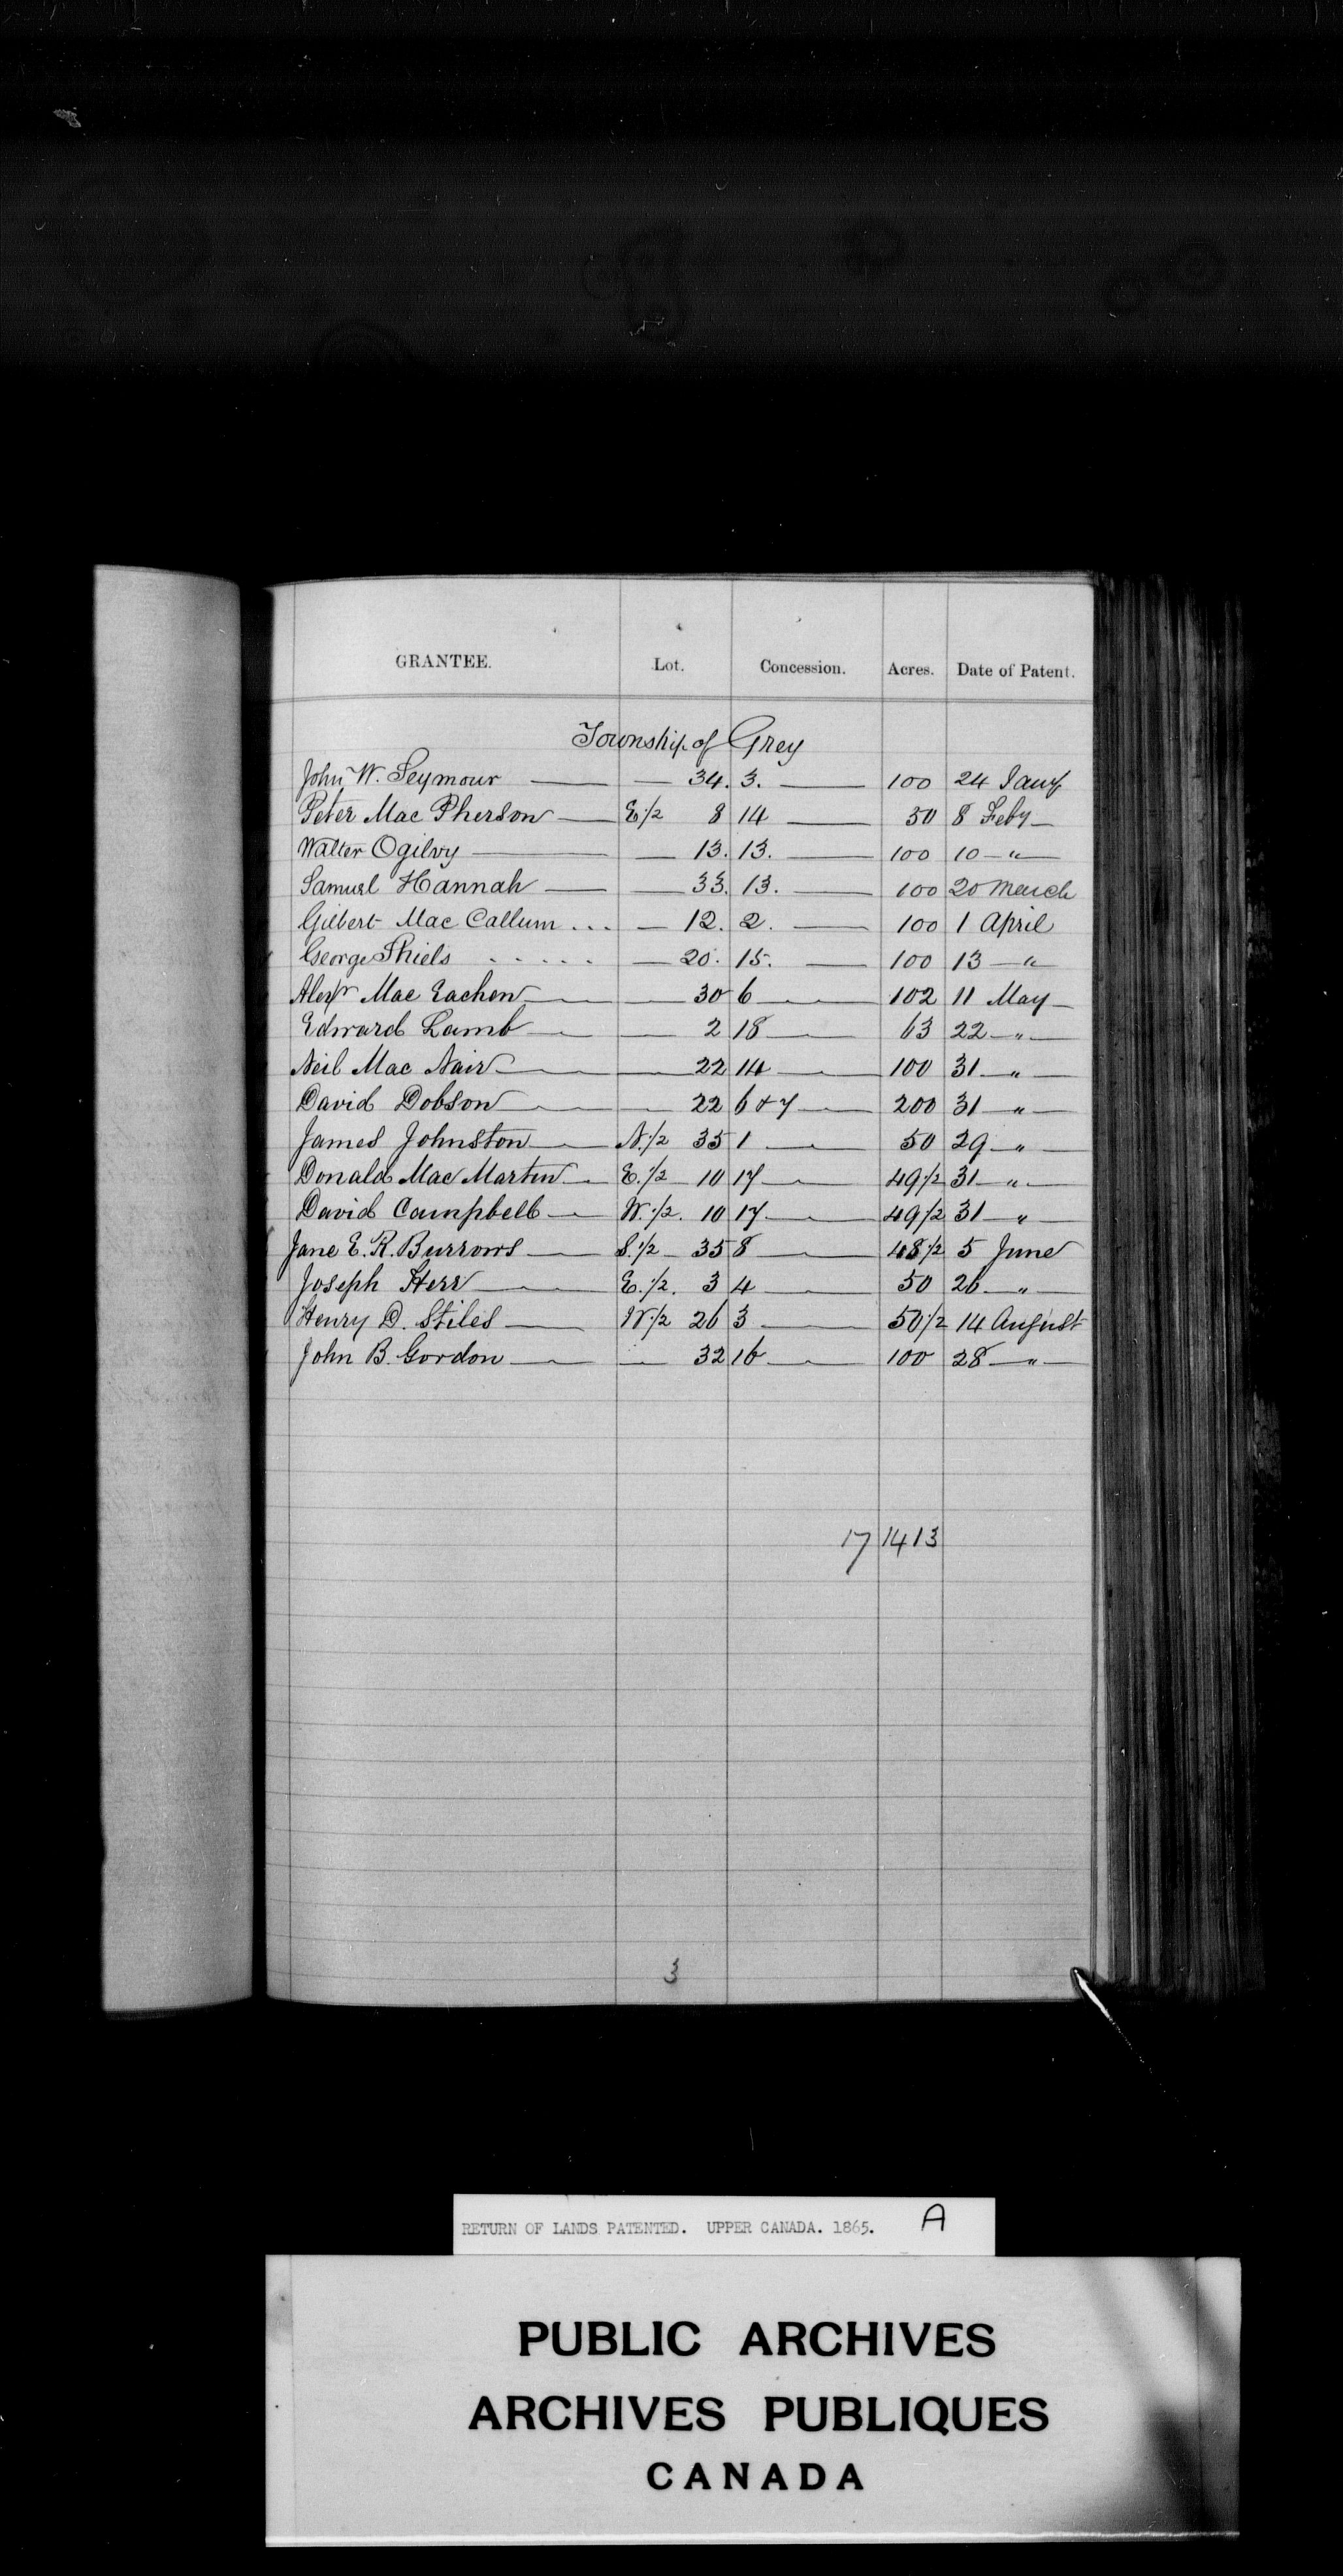 GRANTEE. Lot. Concession. Acres. Date of Patent.
Township of Grey
John W. Seymour — — 34. 3. — 100 24 Jany
Peter Mac Pherson — E.1/2 8 14 — 50 8 Feby —
Walter Ogilvy — — 13. 13. — 100 10 — " —
Samuel Hannah — — 33. 13. — 100 20 March
Gilbert Mac Callum ... — 12. 2. — 100 1 April
George Shiels ..... — 20. 15. — 100 13 — " —
Alexr Mac Eachen — — 30 6 — 102 11 May —
Edward Lamb — — 2 18 — 63 22 — " —
Neil Mac Nair — — 22 14 — 100 31 — " —
David Dobson — — 22 6 & 7 — 200 31 — " —
James Johnston — N.1/2 35 1 — 50 29 — " —
Donald Mac Martin — E.1/2 — 10 17 — 49 1/2 31 — " —
David Campbell — W.1/2. 10 17 — 49 1/2 31 — " —
Jane E. R. Burrows — S.1/2 — 35 8 — 48 1/2 5 June
Joseph Herr — E.1/2. 3 4 — 50 26 — " —
Henry D. Stiles — W.1/2 26 3 — 50 1/2 14 August
John B. Gordon — — 32 16 — 100 28 — " —
17 1413
3
RETURN OF LANDS PATENTED. UPPER CANADA. 1865. A
PUBLIC ARCHIVES
ARCHIVES PUBLIQUES
CANADA